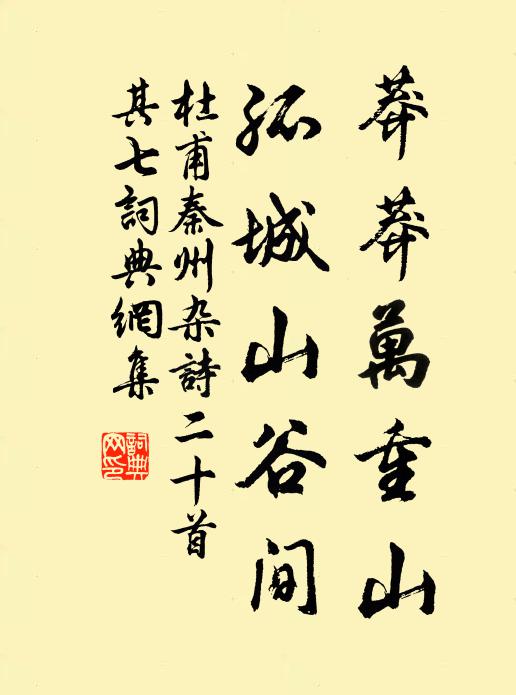 莽莽萬重山
孤城山谷間
杜甫秦州杂詩二十首
其七詞典網集
詞典
网印